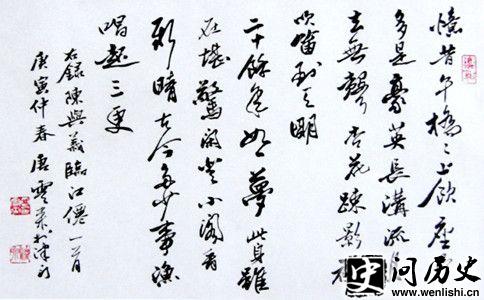 憶昔午橋〻上飲座
多是豪英長溝流月
去無聲杏花疎影裏
吹笛到天明
二十餘年如一夢此身雖
在堪驚閑登小閣看
新晴古今多少事漁
唱起三更
右錄陳與義臨江僊一首
庚寅仲春唐雲來於津
史问历史
www.wenlishi.cn